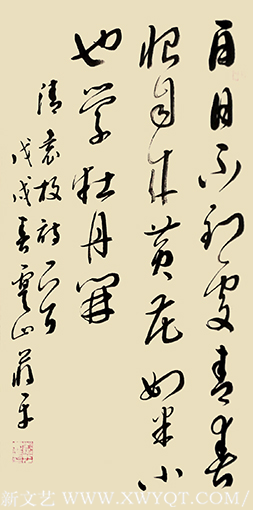 百日不到处青春
恰自来黄花如米小
也学牡丹开
清袁枚诗一首
戊戌春雲山蒋平
新文艺 WWW.XWYQT.COM/